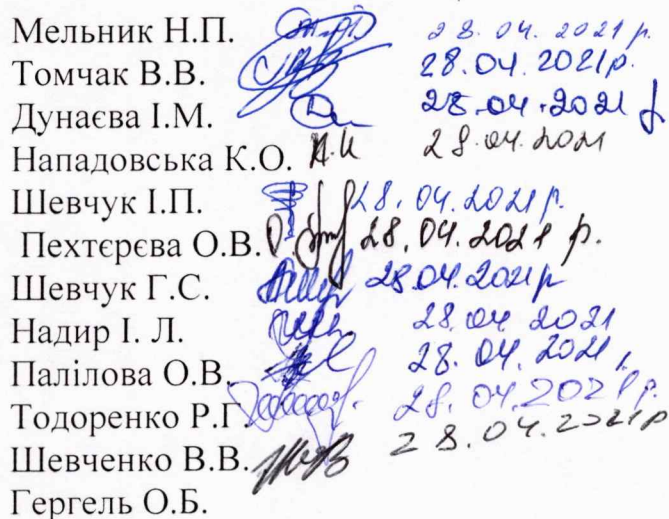 Мельник Н.П. 28.04.2021 р.
Томчак В.В. 28.04.2021р.
Дунаєва І.М. 28.04.2021 р
Нападовська К.О. 28.04.2021
Шевчук І.П. 28.04.2021 р.
Пехтєрєва О.В. 28.04.2021 р.
Шевчук Г.С. 28.04.2021р
Надир І. Л. 28.04 2021
Палілова О.В. 28.04.2021
Тодоренко Р.Г. 28.04.2021р.
Шевченко В.В. 28.04.2021р
Гергель О.Б.